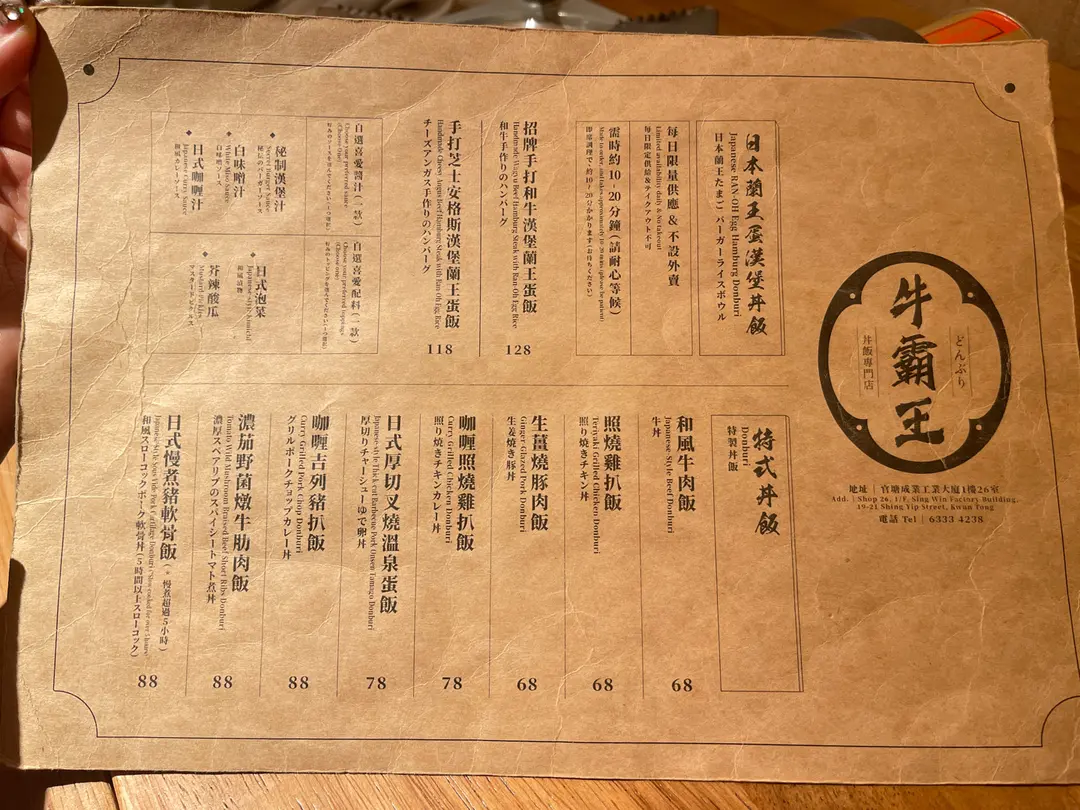 牛霸王
どんぶり
丼飯專門店
地址 | 官塘成業工業大廈1樓26室
Add. | Shop 26, 1/F, Sing Win Factory Building,
19-21 Shing Yip Street, Kwun Tong
電話 Tel | 6333 4238
日本蘭王蛋漢堡丼飯
Japanese RAN-OH Egg Hamburg Donburi
日本蘭王たまご バーガーライスボウル
每日限量供應 & 不設外賣
Limited availability daily & No takeout
毎日限定供給&テイクアウト不可
需時約10 - 20分鐘(請耐心等候)
即席調理で、約10-20分かかります(お待ちください)
招牌手打和牛漢堡蘭王蛋飯
Handmade Wagyu Beef Hamburg Steak with Ran-Oh Egg Rice
和牛手作りのハンバーグ
128
手打芝士安格斯漢堡蘭王蛋飯
Handmade Cheesy Angus Beef Hamburg Steak with Ran-Oh Egg Rice
チーズアンガス手作りのハンバーグ
118
自選喜愛醬汁(一款)
Choose your preferred sauce
(Choose One)
◆ 秘制漢堡汁
Secret Burger Sauce
秘伝のバーガーソース
◆ 白味噌汁
White Miso Sauce
白味噌ソース
◆ 日式咖喱汁
Japanese Curry Sauce
和風カレーソース
自選喜愛配料(一款)
Choose your preferred toppings
(Choose one)
◆ 日式泡菜
Japanese-style Kimchi
和風漬物
◆ 芥辣酸瓜
Mustard Pickles
マスタードピクルス
特式丼飯
Donburi
特製丼飯
和風牛肉飯
Japanese-Style Beef Donburi
牛丼
68
照燒雞扒飯
Teriyaki Grilled Chicken Donburi
照り焼きチキン丼
68
生薑燒豚肉飯
Ginger Glazed Pork Donburi
生姜焼き豚丼
68
咖喱照燒雞扒飯
Curry Grilled Chicken Donburi
照り焼きチキンカレー丼
78
日式厚切叉燒溫泉蛋飯
Japanese-style Thick-cut Barbecue Pork Onsen Tamago Donburi
厚切りチャーシューゆで卵丼
78
咖喱吉列豬扒飯
Curry Grilled Pork Chop Donburi
グリルポークチョップカレー丼
88
濃茄野菌燉牛肋肉飯
Tomato Wild Mushroom Braised Beef Short Ribs Donburi
濃厚スペアリブのスパイシートマト煮丼
88
日式慢煮豬軟骨飯(* 慢煮超過5小時)
和風スローコックポーク軟骨丼(5時間以上スローコック)
88